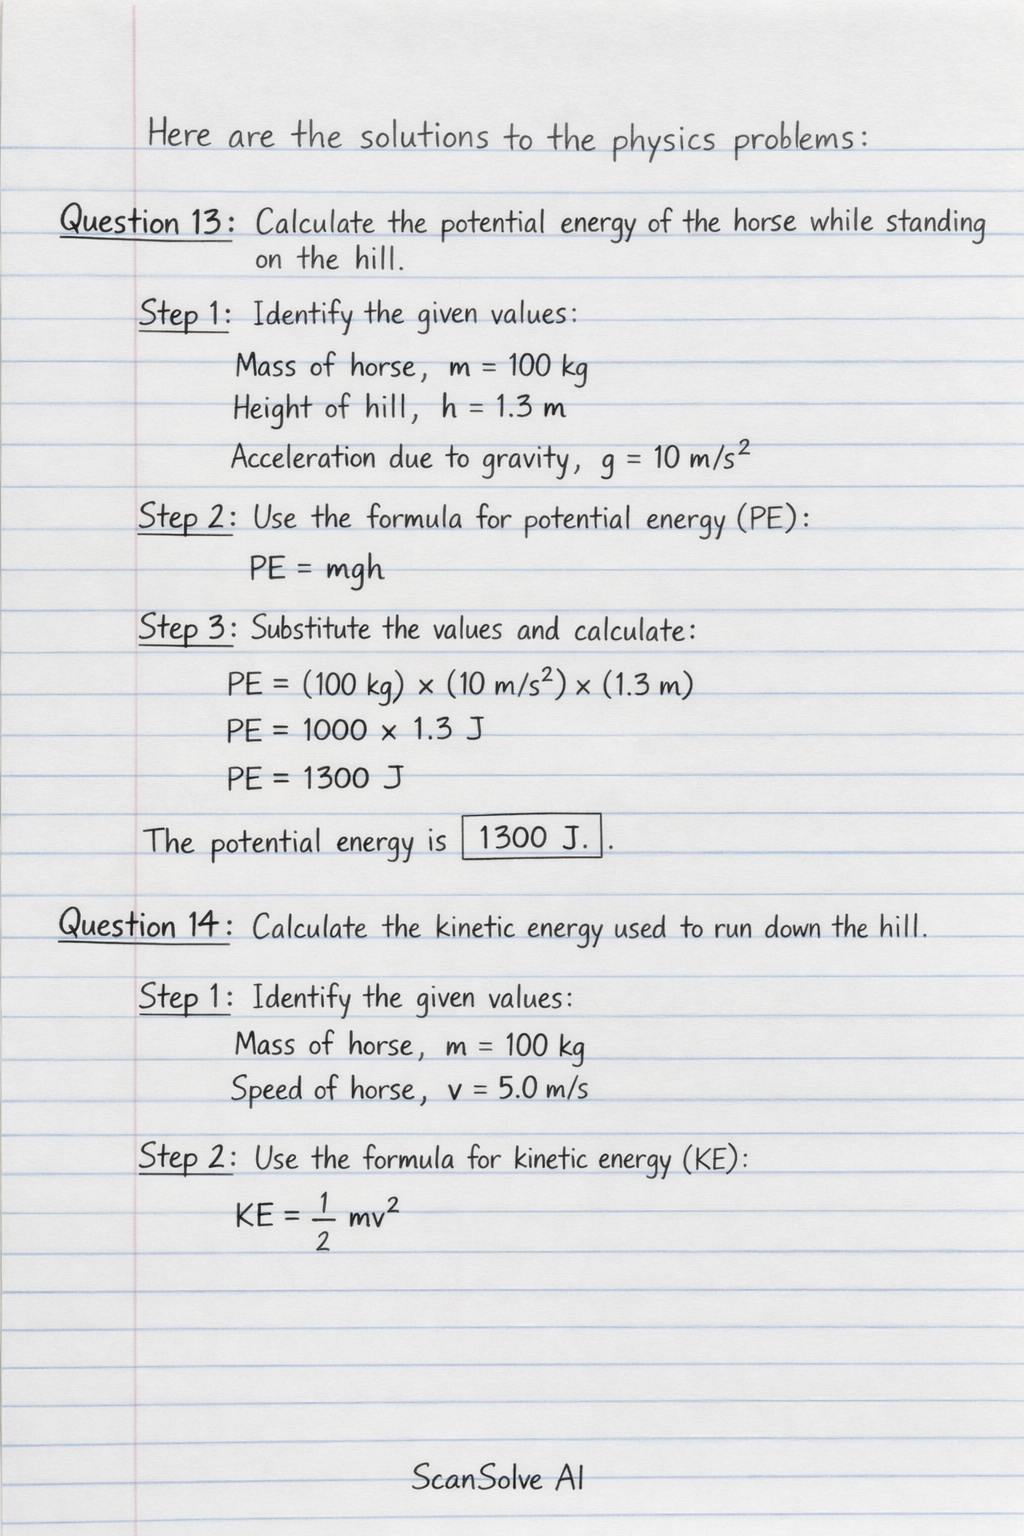 Here are the solutions to the physics problems:
Question 13: Calculate the potential energy of the horse while standing
on the hill.
Step 1: Identify the given values:
Mass of horse, m = 100 kg
Height of hill, h = 1.3 m
Acceleration due to gravity, g = 10 m/s²
Step 2: Use the formula for potential energy (PE):
PE = mgh
Step 3: Substitute the values and calculate:
PE = (100 kg) × (10 m/s²) × (1.3 m)
PE = 1000 × 1.3 J
PE = 1300 J
The potential energy is 1300 J. .
Question 14: Calculate the kinetic energy used to run down the hill.
Step 1: Identify the given values:
Mass of horse, m = 100 kg
Speed of horse, v = 5.0 m/s
Step 2: Use the formula for kinetic energy (KE):
KE = 1/2 mv²
ScanSolve AI